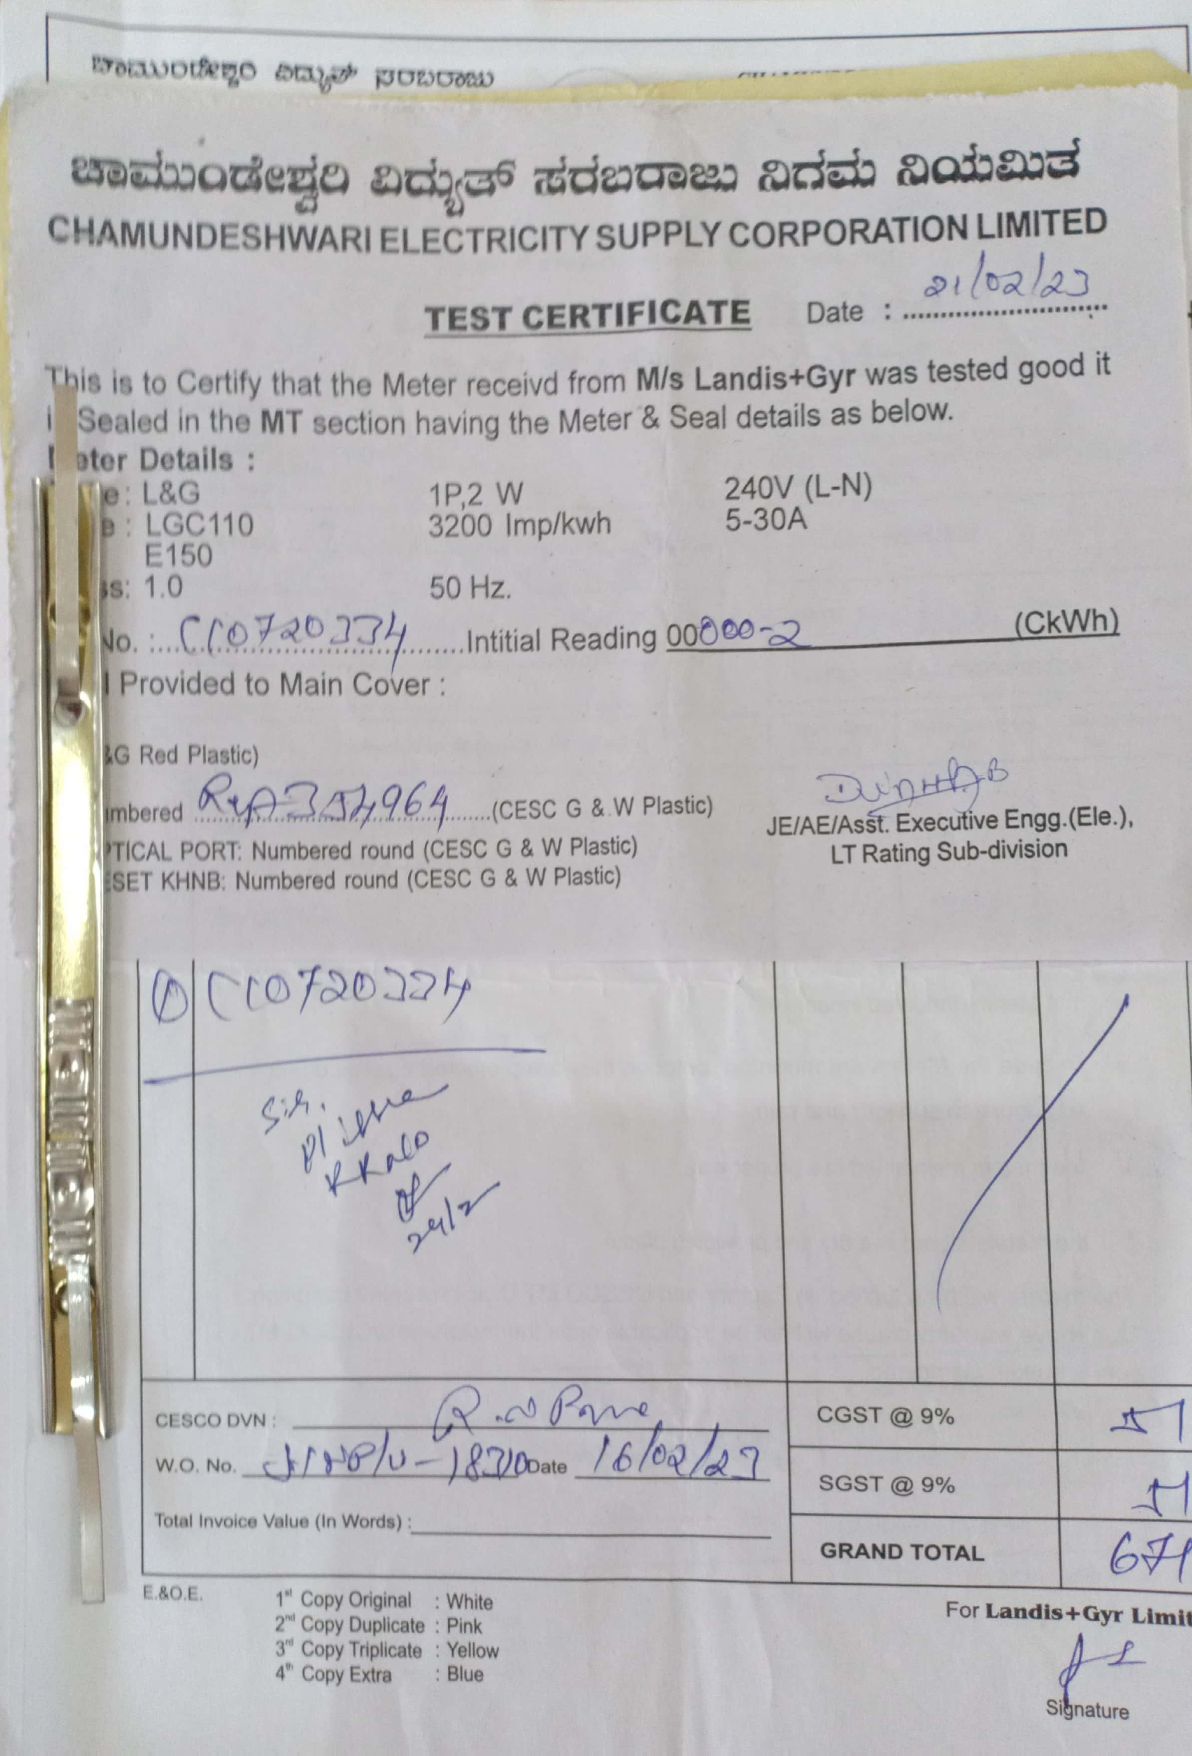 ಚಾಮುಂಡೇಶ್ವರಿ ವಿದ್ಯುತ್ ಸರಬರಾಜು
ಚಾಮುಂಡೇಶ್ವರಿ ವಿದ್ಯುತ್ ಸರಬರಾಜು ನಿಗಮ ನಿಯಮಿತ
CHAMUNDESHWARI ELECTRICITY SUPPLY CORPORATION LIMITED
TEST CERTIFICATE Date : 21/02/23
This is to Certify that the Meter receivd from M/s Landis+Gyr was tested good it
Sealed in the MT section having the Meter & Seal details as below.
Details :
L&G 1P,2 W 240V (L-N)
LGC110 3200 Imp/kwh 5-30A
E150
1.0 50 Hz.
No. : CC0720334 Intitial Reading 00000-2 (CkWh)
Provided to Main Cover :
Red Plastic)
(CESC G & W Plastic)
JE/AE/Asst. Executive Engg.(Ele.),
PORT: Numbered round (CESC G & W Plastic)
LT Rating Sub-division
KHNB: Numbered round (CESC G & W Plastic)
CC0720334
Sir,
24/2
CESCO DVN : CGST @ 9% 51
W.O. No. Date 16/02/23
SGST @ 9% 51
Total Invoice Value (In Words) :
GRAND TOTAL 671
E.&O.E. 1st Copy Original : White
2nd Copy Duplicate : Pink
3rd Copy Triplicate : Yellow
4th Copy Extra : Blue
For Landis+Gyr Limit
Signature